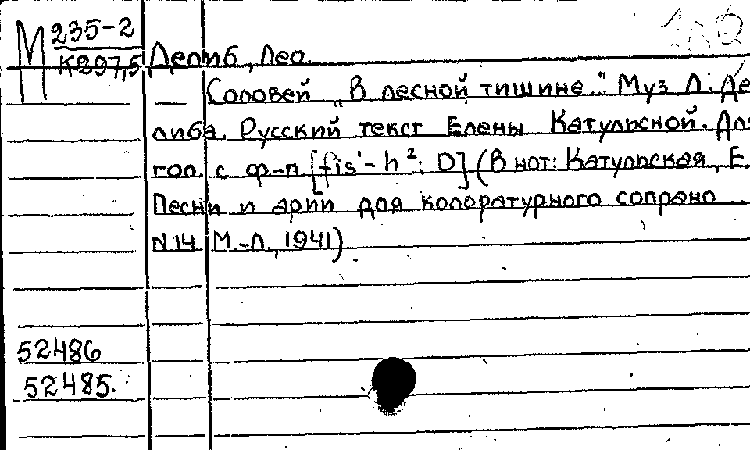 М 235-2
К897,5 Делиб, Лео.
— Соловей „В лесной тишине." Муз Л. Де
либа. Русский текст Елены Катульской. Для
гол. с ф-п [fis'- h²; D] (В нот: Катульская, Е.
Песни и арии для колоратурного сопрано
N.14. М.-Л., 1941)
52486
52485.